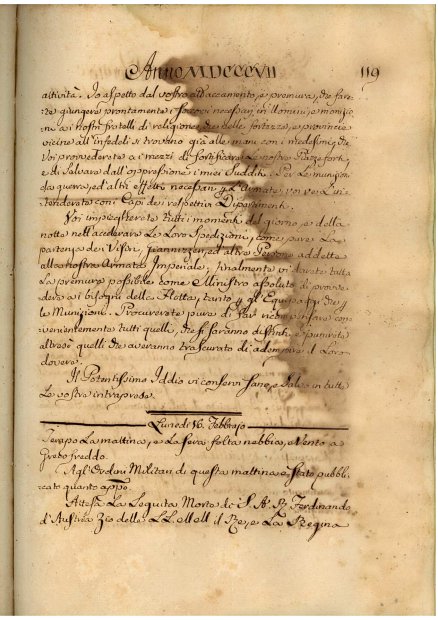 Anno MDCCCVII 119
attività. Io aspetto dal vostro attaccamento, e premura, che fare-
te giungere prontamente i soccorsi necessarj in Uomini, e monizio-
ni ai nostri fratelli di religione, che nelle fortezze, e provincie
vicine all'infedeli si trovano già alle mani con i medesimi, e di
Voi provvederete ai mezzi di fortificare le nostre Piazze forti,
e di salvare dall'oppressione i miei Sudditi. Per le munizioni
da guerra, ed altri effetti necessarj p. le Armate voi ve l'in-
tenderete con i Capi dei rispettivi Dipartimenti.
Voi impiegherete tutti i momenti del giorno, e della
notte nell'accelerare le loro Spedizioni, come pure la
partenza dei Visiri, giannizzeri, ed altre Persone addette
alla nostra Armata Imperiale, finalmente vi darete tutta
la premura possibile come Ministro assoluto di provve-
dere ai bisogni della Flotta, tanto p. gl'Equipaggi che p.
le Munizioni. Procurerete pure di far ricompensare con-
venientemente tutti quelli, che si saranno distinti, e punirete
altresì quelli che averanno trascurato di adempire il Loro
dovere.
Il Potentissimo Iddio vi conservi sano, e salvo in tutte
le vostre intraprese.
Lunedì 16. Febbraro
Tempo la mattina, e la sera folta nebbia, e Vento a
Greco freddo.
Agl'Ordini Militari di questa mattina è stato pubbli-
cato quanto app.o
Attesa la seguita Morte di S. A. R. Ferdinando
d'Austria Zio delle LL. MM. il Re, e la Regina